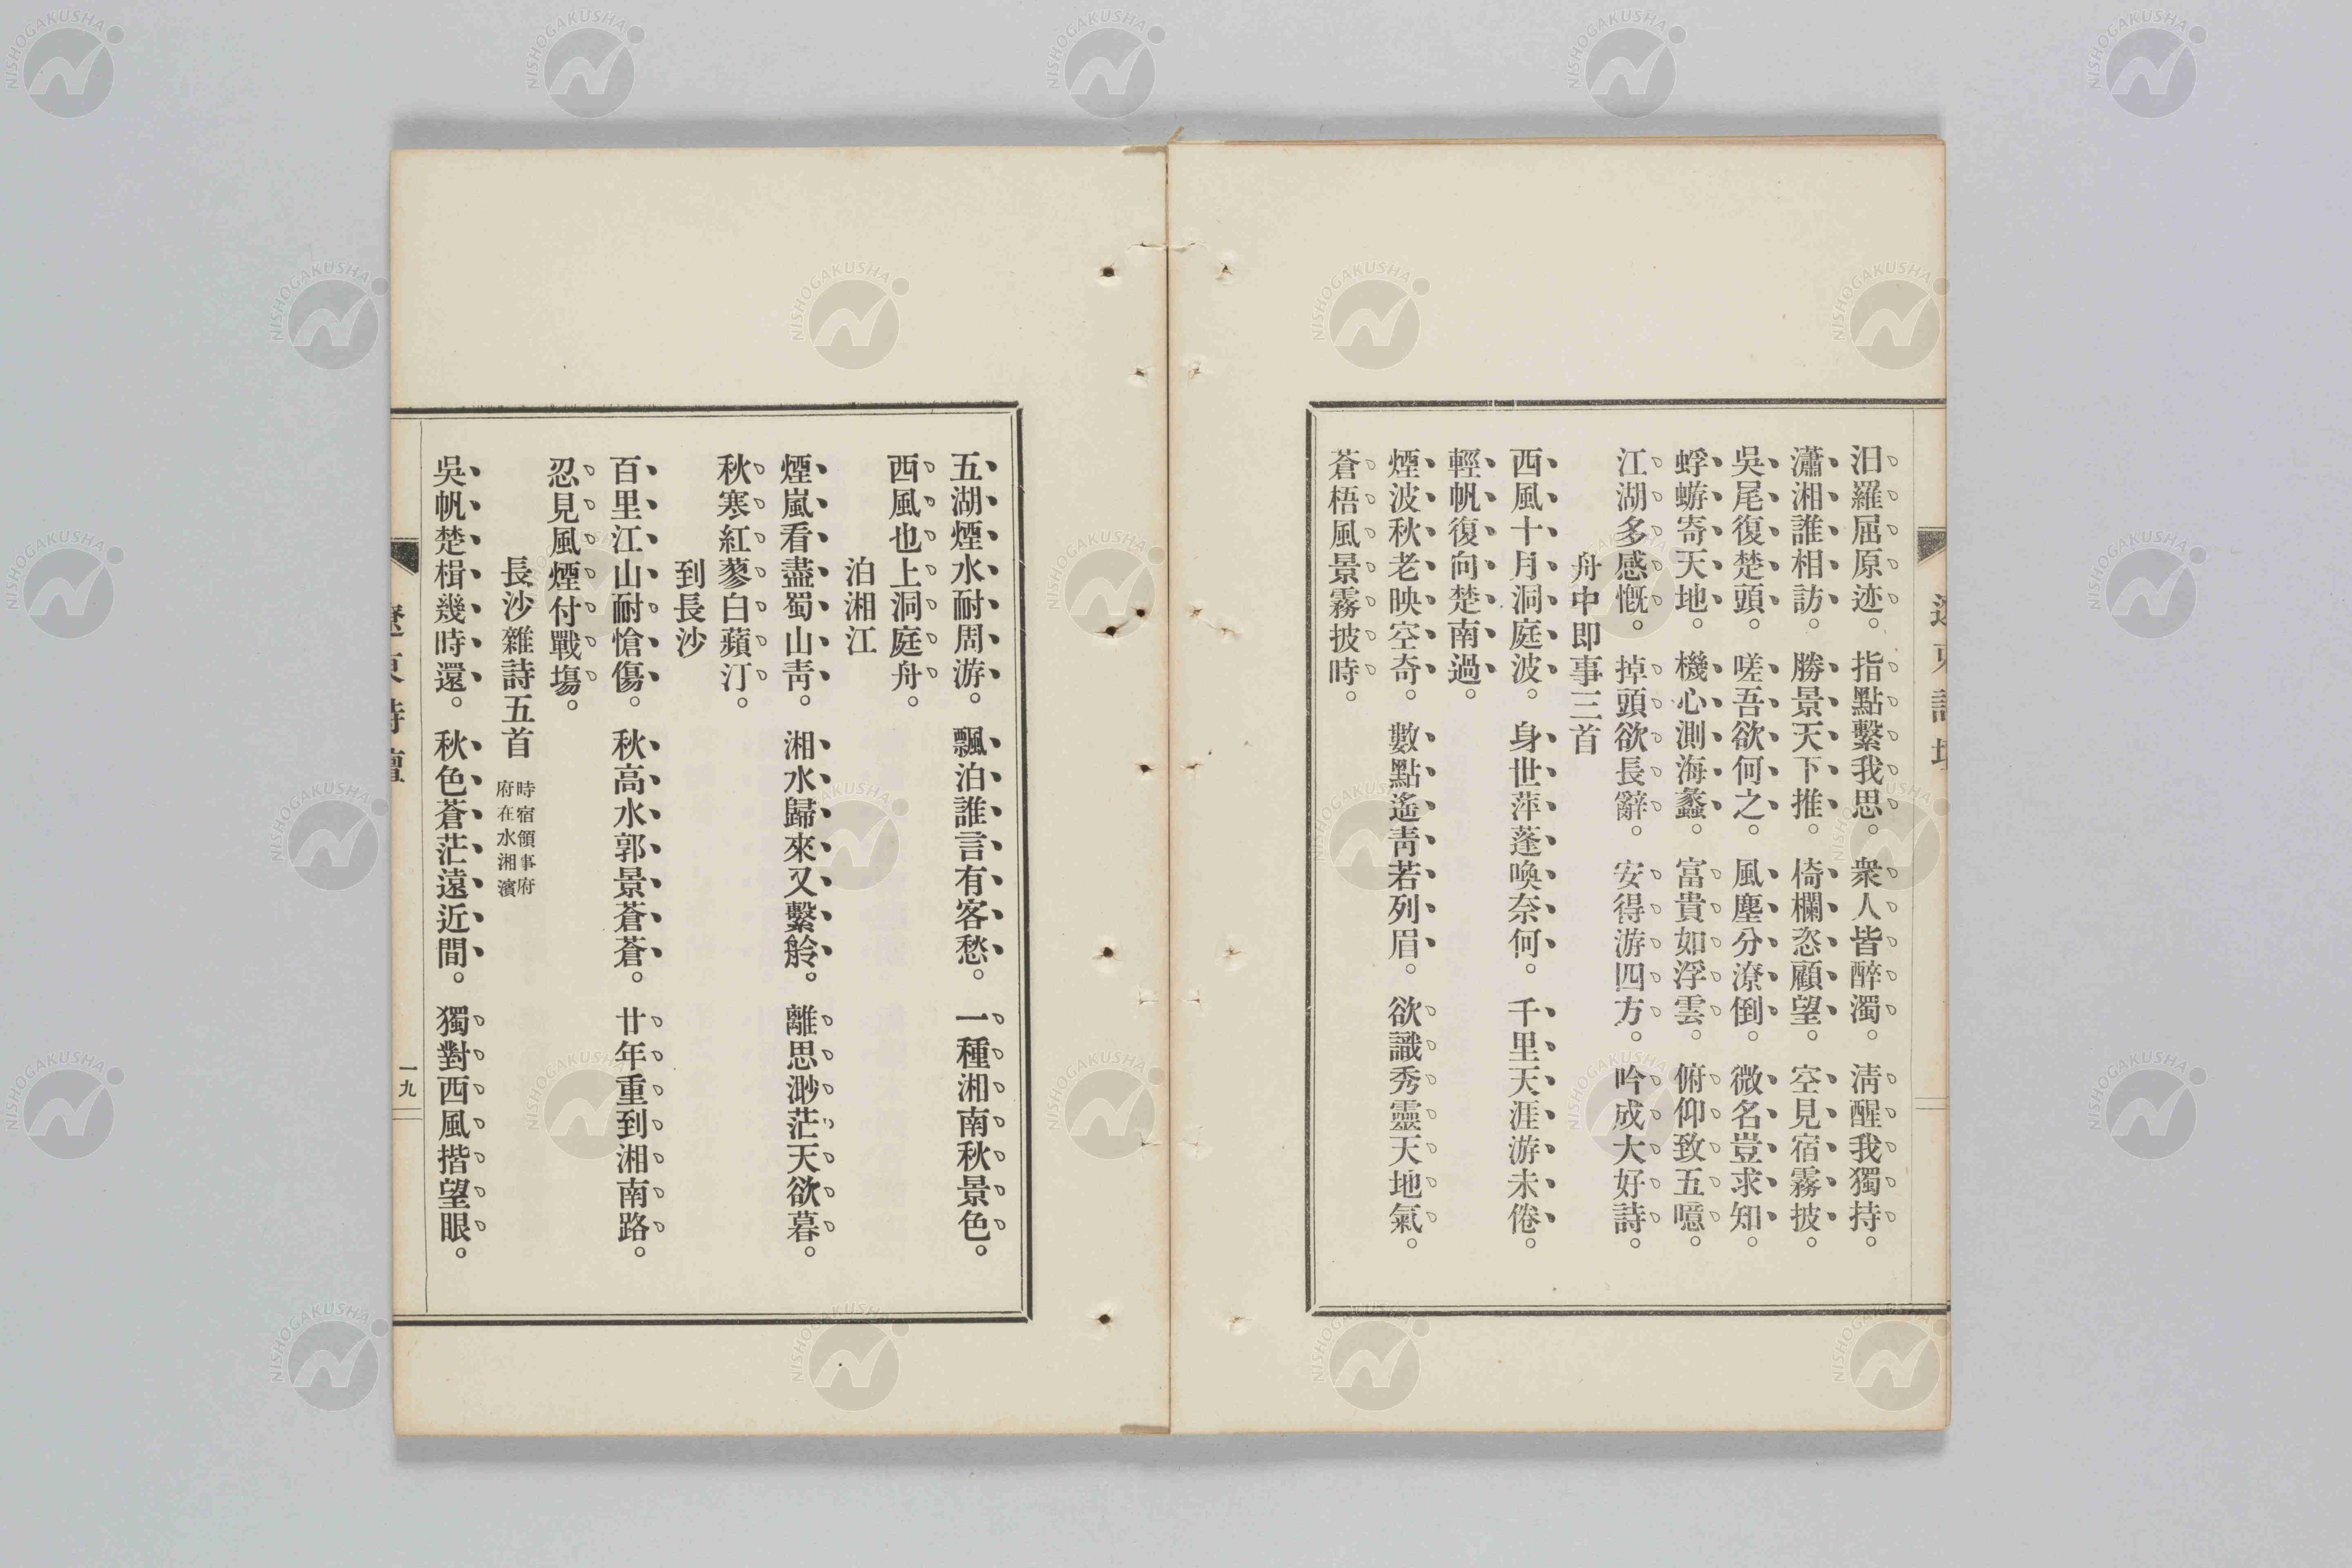 汨羅屈原迹。指點繫我思。衆人皆醉濁。淸醒我獨持。
瀟湘誰相訪。勝景天下推。倚欄恣顧望。空見宿霧披。
吳尾復楚頭。嗟吾欲何之。風塵分潦倒。微名豈求知。
蜉蝣寄天地。機心測海蠡。富貴如浮雲。俯仰致五噫。
江湖多感慨。掉頭欲長辭。安得游四方。吟成大好詩。
舟中即事三首
西風十月洞庭波。身世萍蓬喚奈何。千里天涯游未倦。
輕帆復向楚南過。
煙波秋老映空奇。數點遙靑若列眉。欲識秀靈天地氣。
蒼梧風景霧披時。
五湖煙水耐周游。飄泊誰言有客愁。一種湘南秋景色。
西風也上洞庭舟。
泊湘江
煙嵐看盡蜀山靑。湘水歸來又繫舲。離思渺茫天欲暮。
秋寒紅蓼白蘋汀。
到長沙
百里江山耐愴傷。秋高水郭景蒼蒼。廿年重到湘南路。
忍見風煙付戰場。
長沙雜詩五首 時宿領事府
府在水湘濱
吳帆楚楫幾時還。秋色蒼茫遠近間。獨對西風揩望眼。
遼東詩壇
一九
NISHOGAKUSHA